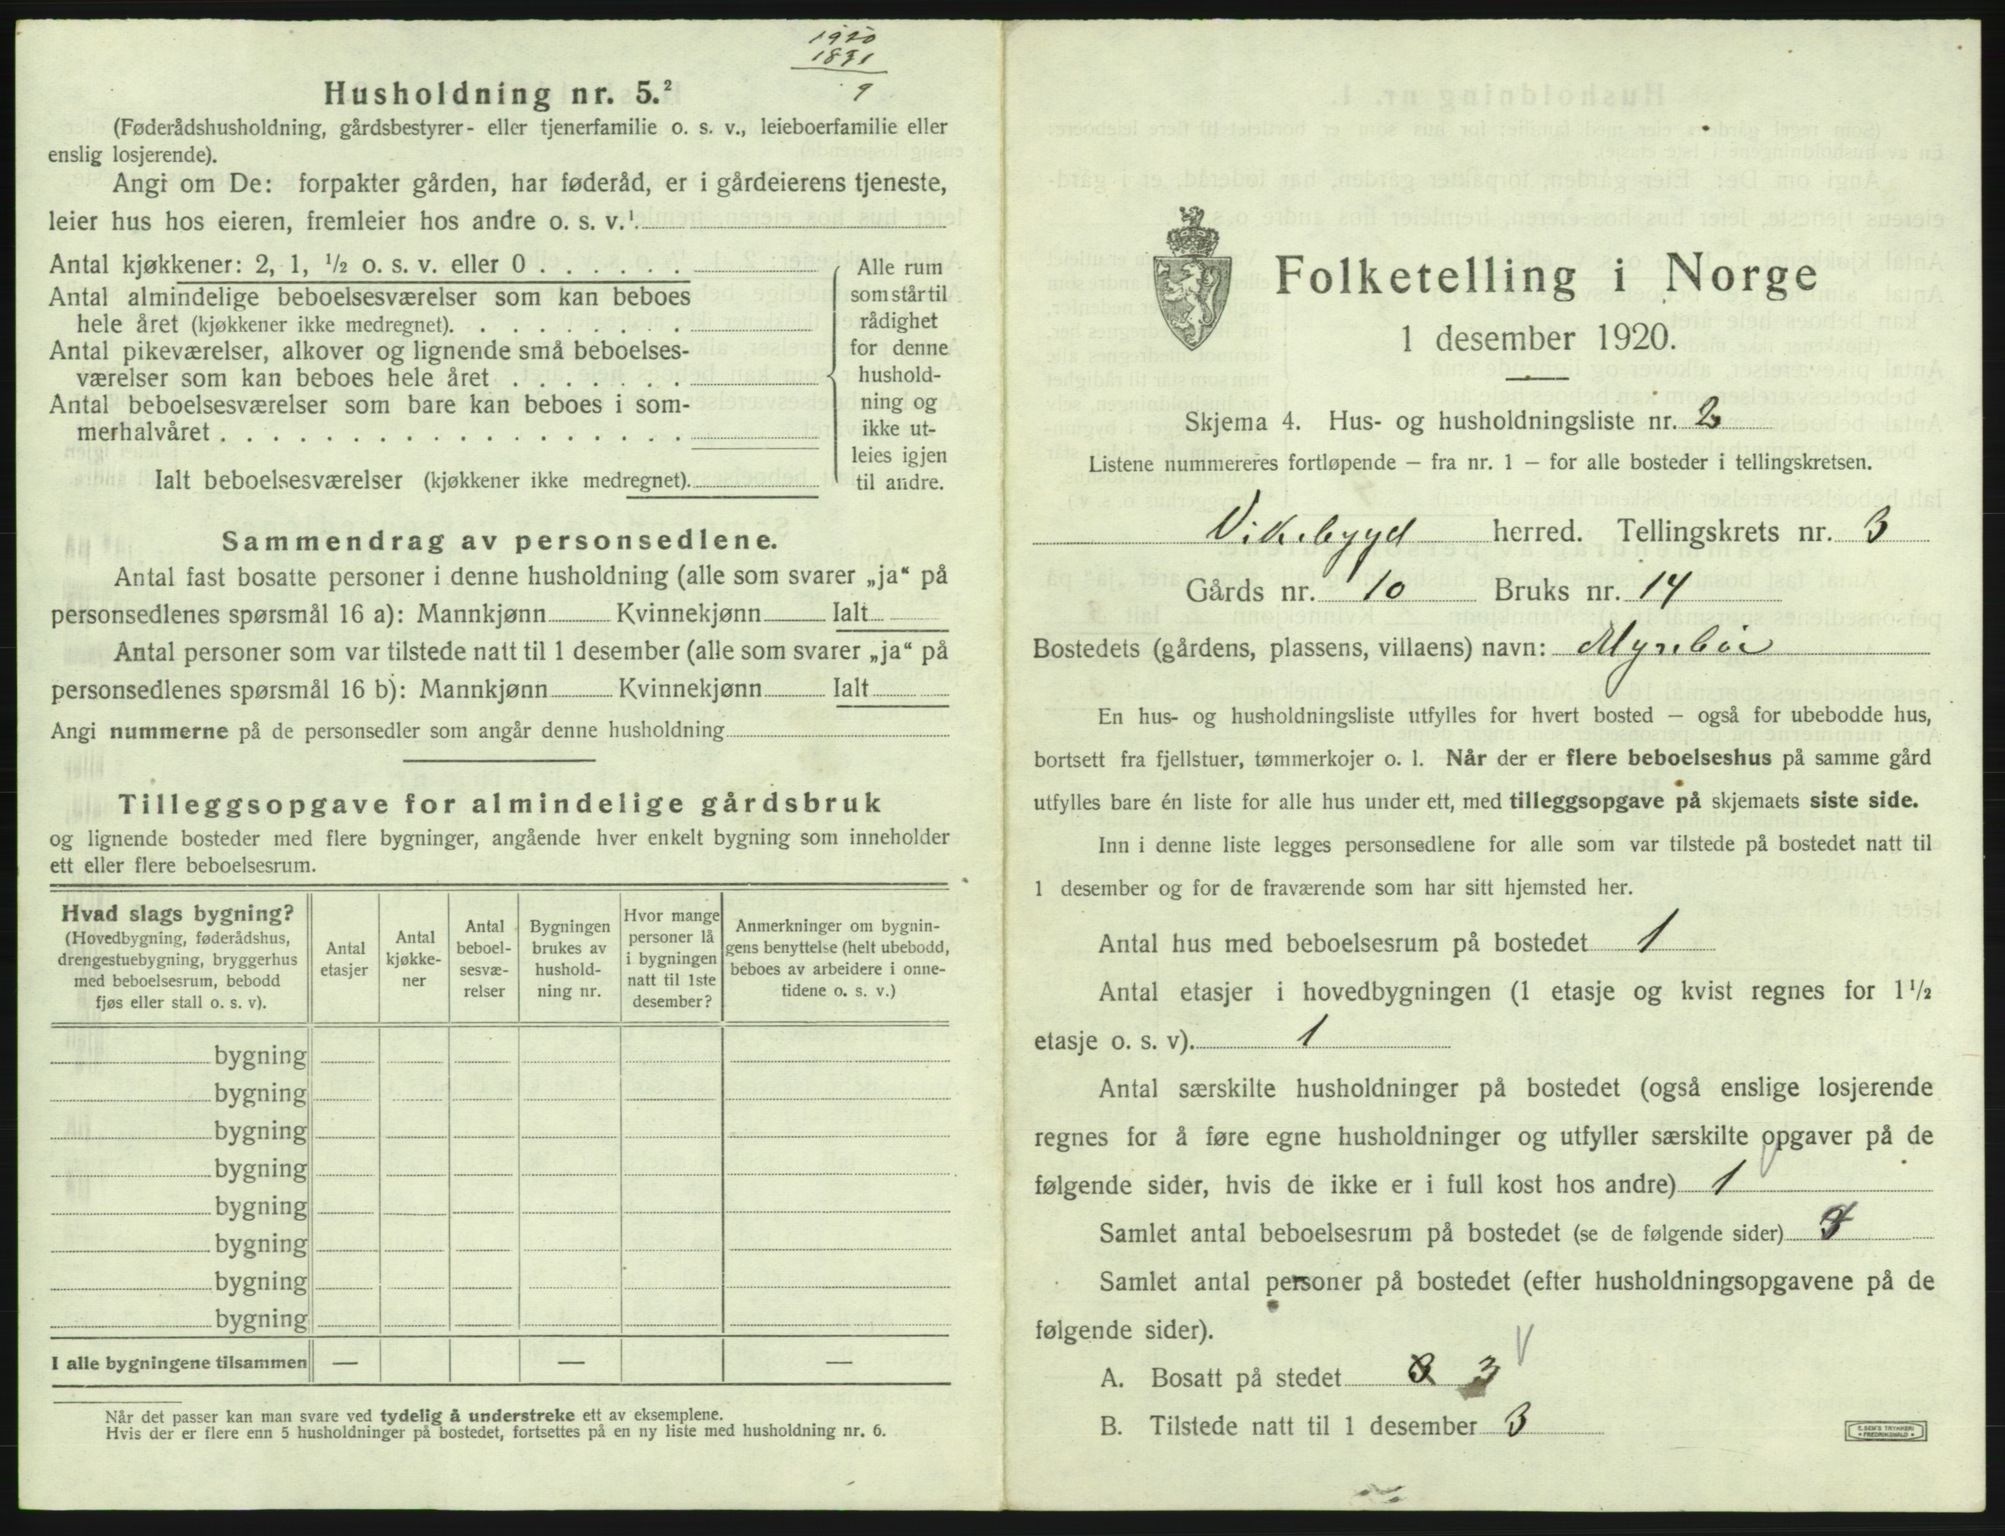 1920
1831
9
Husholdning nr. 5.²
(Føderådshusholdning, gårdsbestyrer- eller tjenerfamilie o. s. v., leieboerfamilie eller
enslig losjerende).
Angi om De: forpakter gården, har føderåd, er i gårdeierens tjeneste,
leier hus hos eieren, fremleier hos andre o. s. v.¹
Antal kjøkkener: 2, 1, ½ o. s. v. eller 0 . . . . . .
Antal almindelige beboelsesværelser som kan beboes
hele året (kjøkkener ikke medregnet). . . . . . . . .
Antal pikeværelser, alkover og lignende små beboelses-
værelser som kan beboes hele året . . . . . . .
Antal beboelsesværelser som bare kan beboes i som-
merhalvåret . . . . . . . . . . . . . . . . .
Ialt beboelsesværelser (kjøkkener ikke medregnet).
Alle rum
som står til
rådighet
for denne
hushold-
ning og
ikke ut-
leies igjen
til andre.
Sammendrag av personsedlene.
Antal fast bosatte personer i denne husholdning (alle som svarer „ja“ på
personsedlenes spørsmål 16 a): Mannkjønn Kvinnekjønn Ialt
Antal personer som var tilstede natt til 1 desember (alle som svarer „ja“ på
personsedlenes spørsmål 16 b): Mannkjønn Kvinnekjønn Ialt
Angi nummerne på de personsedler som angår denne husholdning
Tilleggsopgave for almindelige gårdsbruk
og lignende bosteder med flere bygninger, angående hver enkelt bygning som inneholder
ett eller flere beboelsesrum.
Hvad slags bygning?
(Hovedbygning, føderådshus,
drengestuebygning, bryggerhus
med beboelsesrum, bebodd
fjøs eller stall o. s. v).
Antal
etasjer
Antal
kjøkke-
ner
Antal
beboel-
sesvæ-
relser
Bygningen
brukes av
hushold-
ning nr.
Hvor mange
personer lå
i bygningen
natt til 1ste
desember?
Anmerkninger om bygnin-
gens benyttelse (helt ubebodd,
beboes av arbeidere i onne-
tidene o. s. v.)
bygning
bygning
bygning
bygning
bygning
bygning
bygning
bygning
I alle bygningene tilsammen — — —
Når det passer kan man svare ved tydelig å understreke ett av eksemplene.
Hvis der er flere enn 5 husholdninger på bostedet, fortsettes på en ny liste med husholdning nr. 6.
Folketelling i Norge
1 desember 1920.
Skjema 4. Hus- og husholdningsliste nr. 2
Listene nummereres fortløpende — fra nr. 1 — for alle bosteder i tellingskretsen.
Vikebygd herred. Tellingskrets nr. 3
Gårds nr. 10 Bruks nr. 14
Bostedets (gårdens, plassens, villaens) navn: Myrebøe
En hus- og husholdningsliste utfylles for hvert bosted — også for ubebodde hus,
bortsett fra fjellstuer, tømmerkojer o. l. Når der er flere beboelseshus på samme gård
utfylles bare én liste for alle hus under ett, med tilleggsopgave på skjemaets siste side.
Inn i denne liste legges personsedlene for alle som var tilstede på bostedet natt til
1 desember og for de fraværende som har sitt hjemsted her.
Antal hus med beboelsesrum på bostedet 1
Antal etasjer i hovedbygningen (1 etasje og kvist regnes for 1½
etasje o. s. v). 1
Antal særskilte husholdninger på bostedet (også enslige losjerende
regnes for å føre egne husholdninger og utfyller særskilte opgaver på de
følgende sider, hvis de ikke er i full kost hos andre) 1
Samlet antal beboelsesrum på bostedet (se de følgende sider)
Samlet antal personer på bostedet (efter husholdningsopgavene på de
følgende sider).
A. Bosatt på stedet 3 3
B. Tilstede natt til 1 desember 3